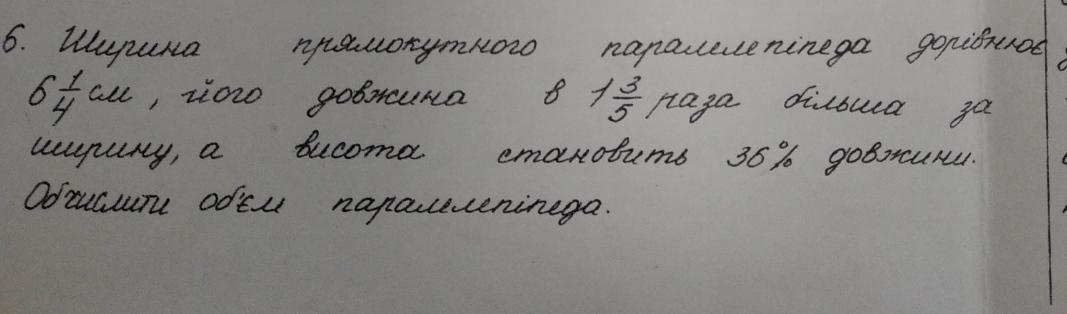 6. Ширина прямокутного паралелепіпеда дорівнює
6 1/4 см, його довжина в 1 3/5 раза більша за
ширину, а висота становить 36% довжини.
Обчислити об'єм паралелепіпеда.